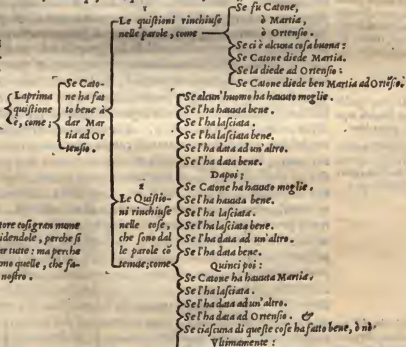 1
Le quiſtioni rinchiuſe
nelle parole, come
Se fu Catone,
ò Martia,
ò Ortenſio.
Se ci è alcuna coſa buona:
Se Catone diede Martia.
Se la diede ad Ortenſio:
Se Catone diede ben Martia ad Ortēſio.
La prima
quiſtione
è, come;
Se Cato-
ne ha fat
to bene à
dar Mar
tia ad Or
tenſio.
2
Le Quiſtio-
ni rinchiuſe
nelle coſe,
che ſono dal
le parole cō
tenute; come
Se alcun'huomo ha hauuto moglie.
Se l'ha hauuta bene.
Se l'ha laſciata.
Se l'ha laſciata bene.
Se l'ha data ad un'altro.
Se l'ha data bene.
Dapoi:
Se Catone ha hauuto moglie.
Se l'ha hauuta bene.
Se l'ha laſciata.
Se l'ha laſciata bene.
Se l'ha data ad un'altro.
Se l'ha data bene.
Quinci poi:
Se Catone ha hauuta Martia.
Se l'ha laſciata.
Se l'ha data ad un'altro.
Se l'ha data ad Ortenſio. &
Se ciaſcuna di queſte coſe ha fatto bene, ò nò
Vltimamente:
tore coſi gran nume
idendole, perche ſi
ar tutte: ma perche
mo quelle, che fa-
noſtro.